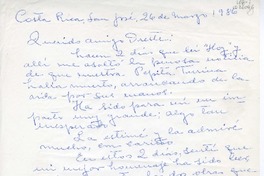 Costa Rica, San José, 26 de Marzo 1986
Querido amigo
hacen 2 días que leí Hoy, y
allí me asaltó la penosa noticia
de que nuestra Pepita Turina
había muerto, arrancando de la
vida por sus manos.
Ha sido para mí un im-
pacto muy grande; algo tan
inesperado.
La estimé y la admiré
mucho, con cariño
En estos 2 días, sentí que
mi mejor homenaje ha sido leer
2 obras que